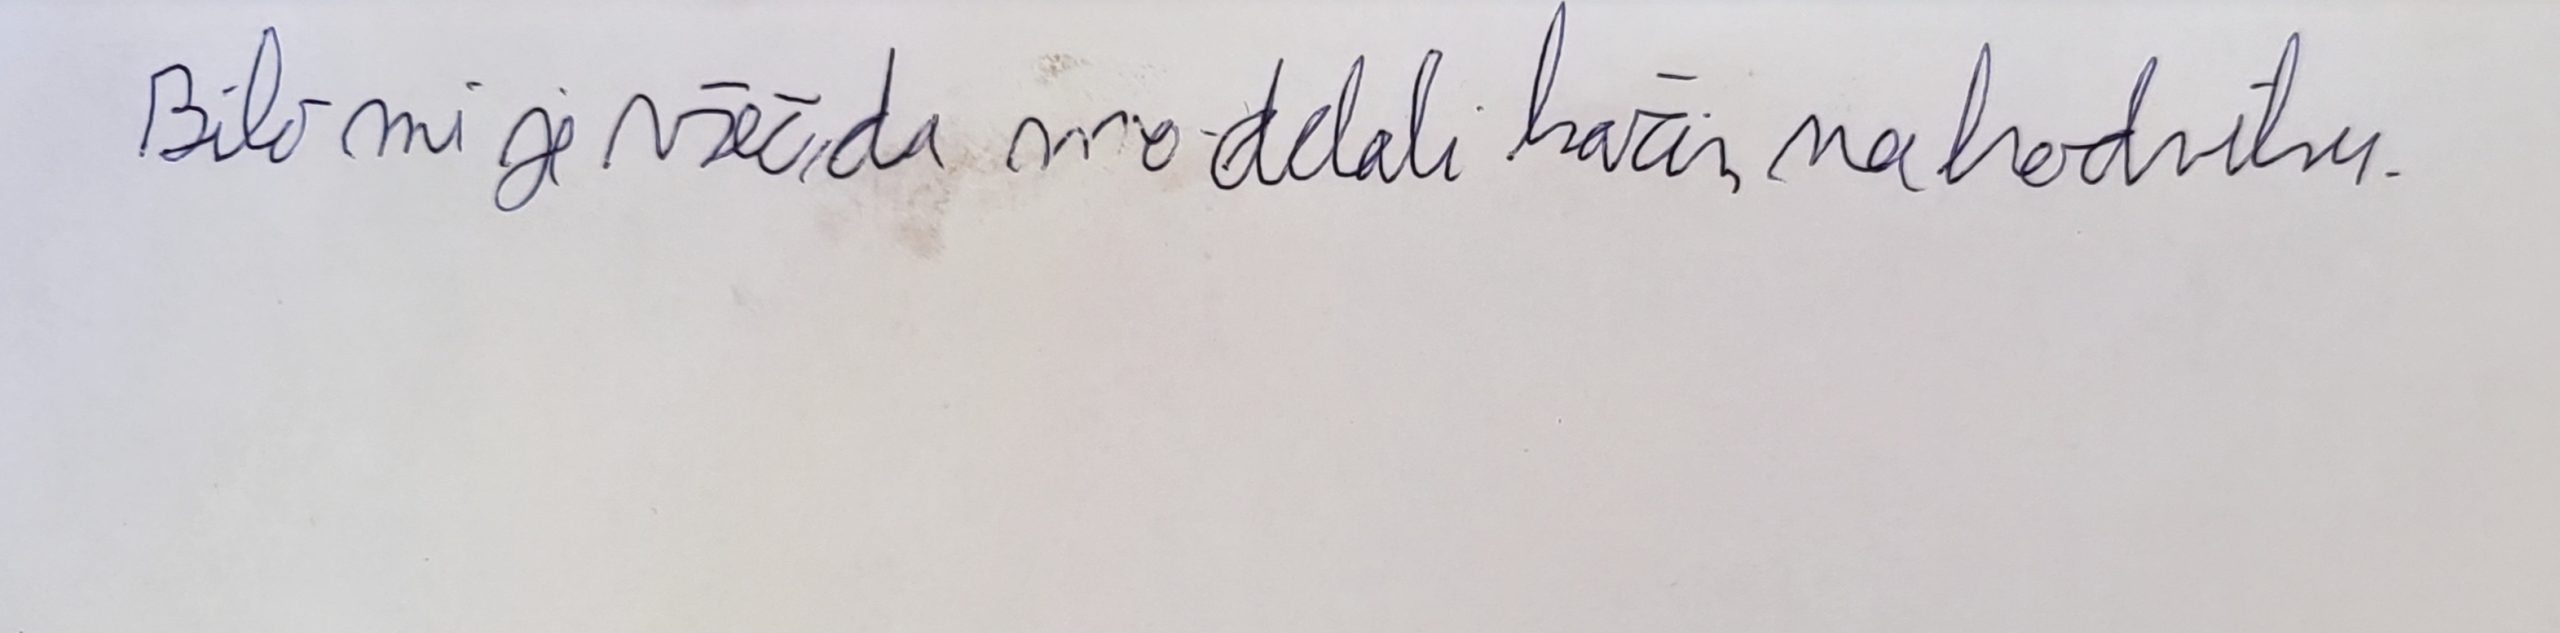 Bilo mi je všeč, da smo delali na hodniku.